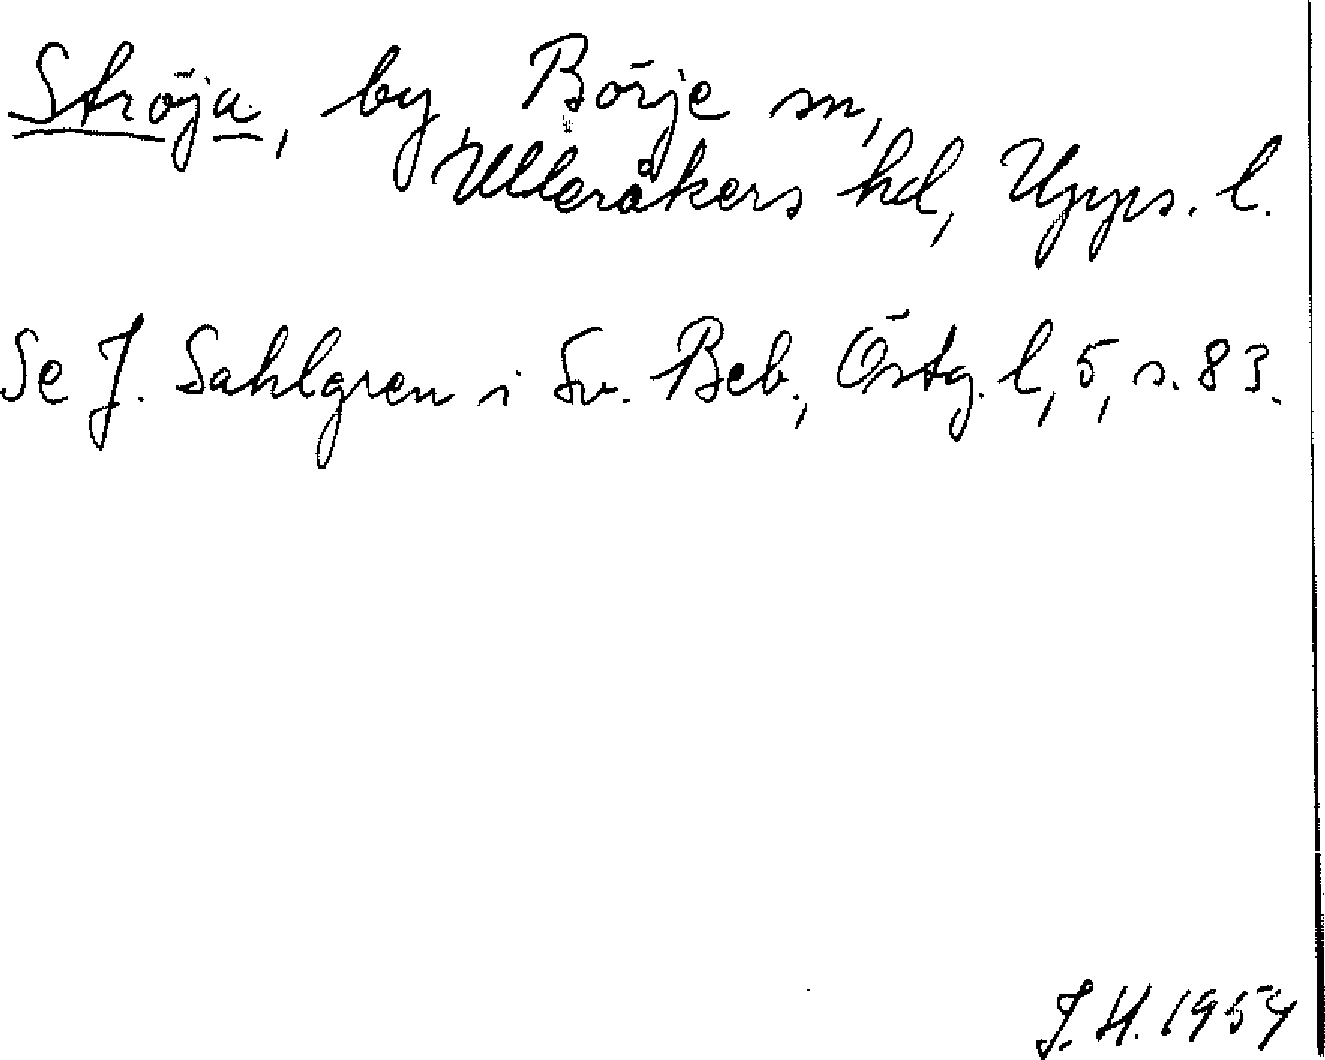 Ströja, by, Börje sn,
Ulleråkers hd, Upps. l.
Se J. Sahlgren i Sv. Beb., Östg. l, 5, s. 83.
J. H. 1954